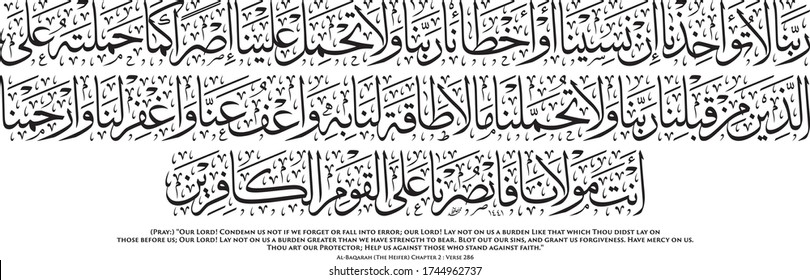 ربنا لا تؤاخذنا إن نسينا أو أخطأنا ربنا ولا تحمل علينا إصرا كما حملته على
الذين من قبلنا ربنا ولا تحملنا ما لا طاقة لنا به واعف عنا واغفر لنا وارحمنا
أنت مولانا فانصرنا على القوم الكافرين
١٤٤١
(Pray:) "Our Lord! Condemn us not if we forget or fall into error; our Lord! Lay not on us a burden Like that which Thou didst lay on
those before us; Our Lord! Lay not on us a burden greater than we have strength to bear. Blot out our sins, and grant us forgiveness. Have mercy on us.
Thou art our Protector; Help us against those who stand against faith."
Al-Baqarah (The Heifer) Chapter 2 : Verse 286
shutterstock
IMAGE ID: 1744962737
www.shutterstock.com